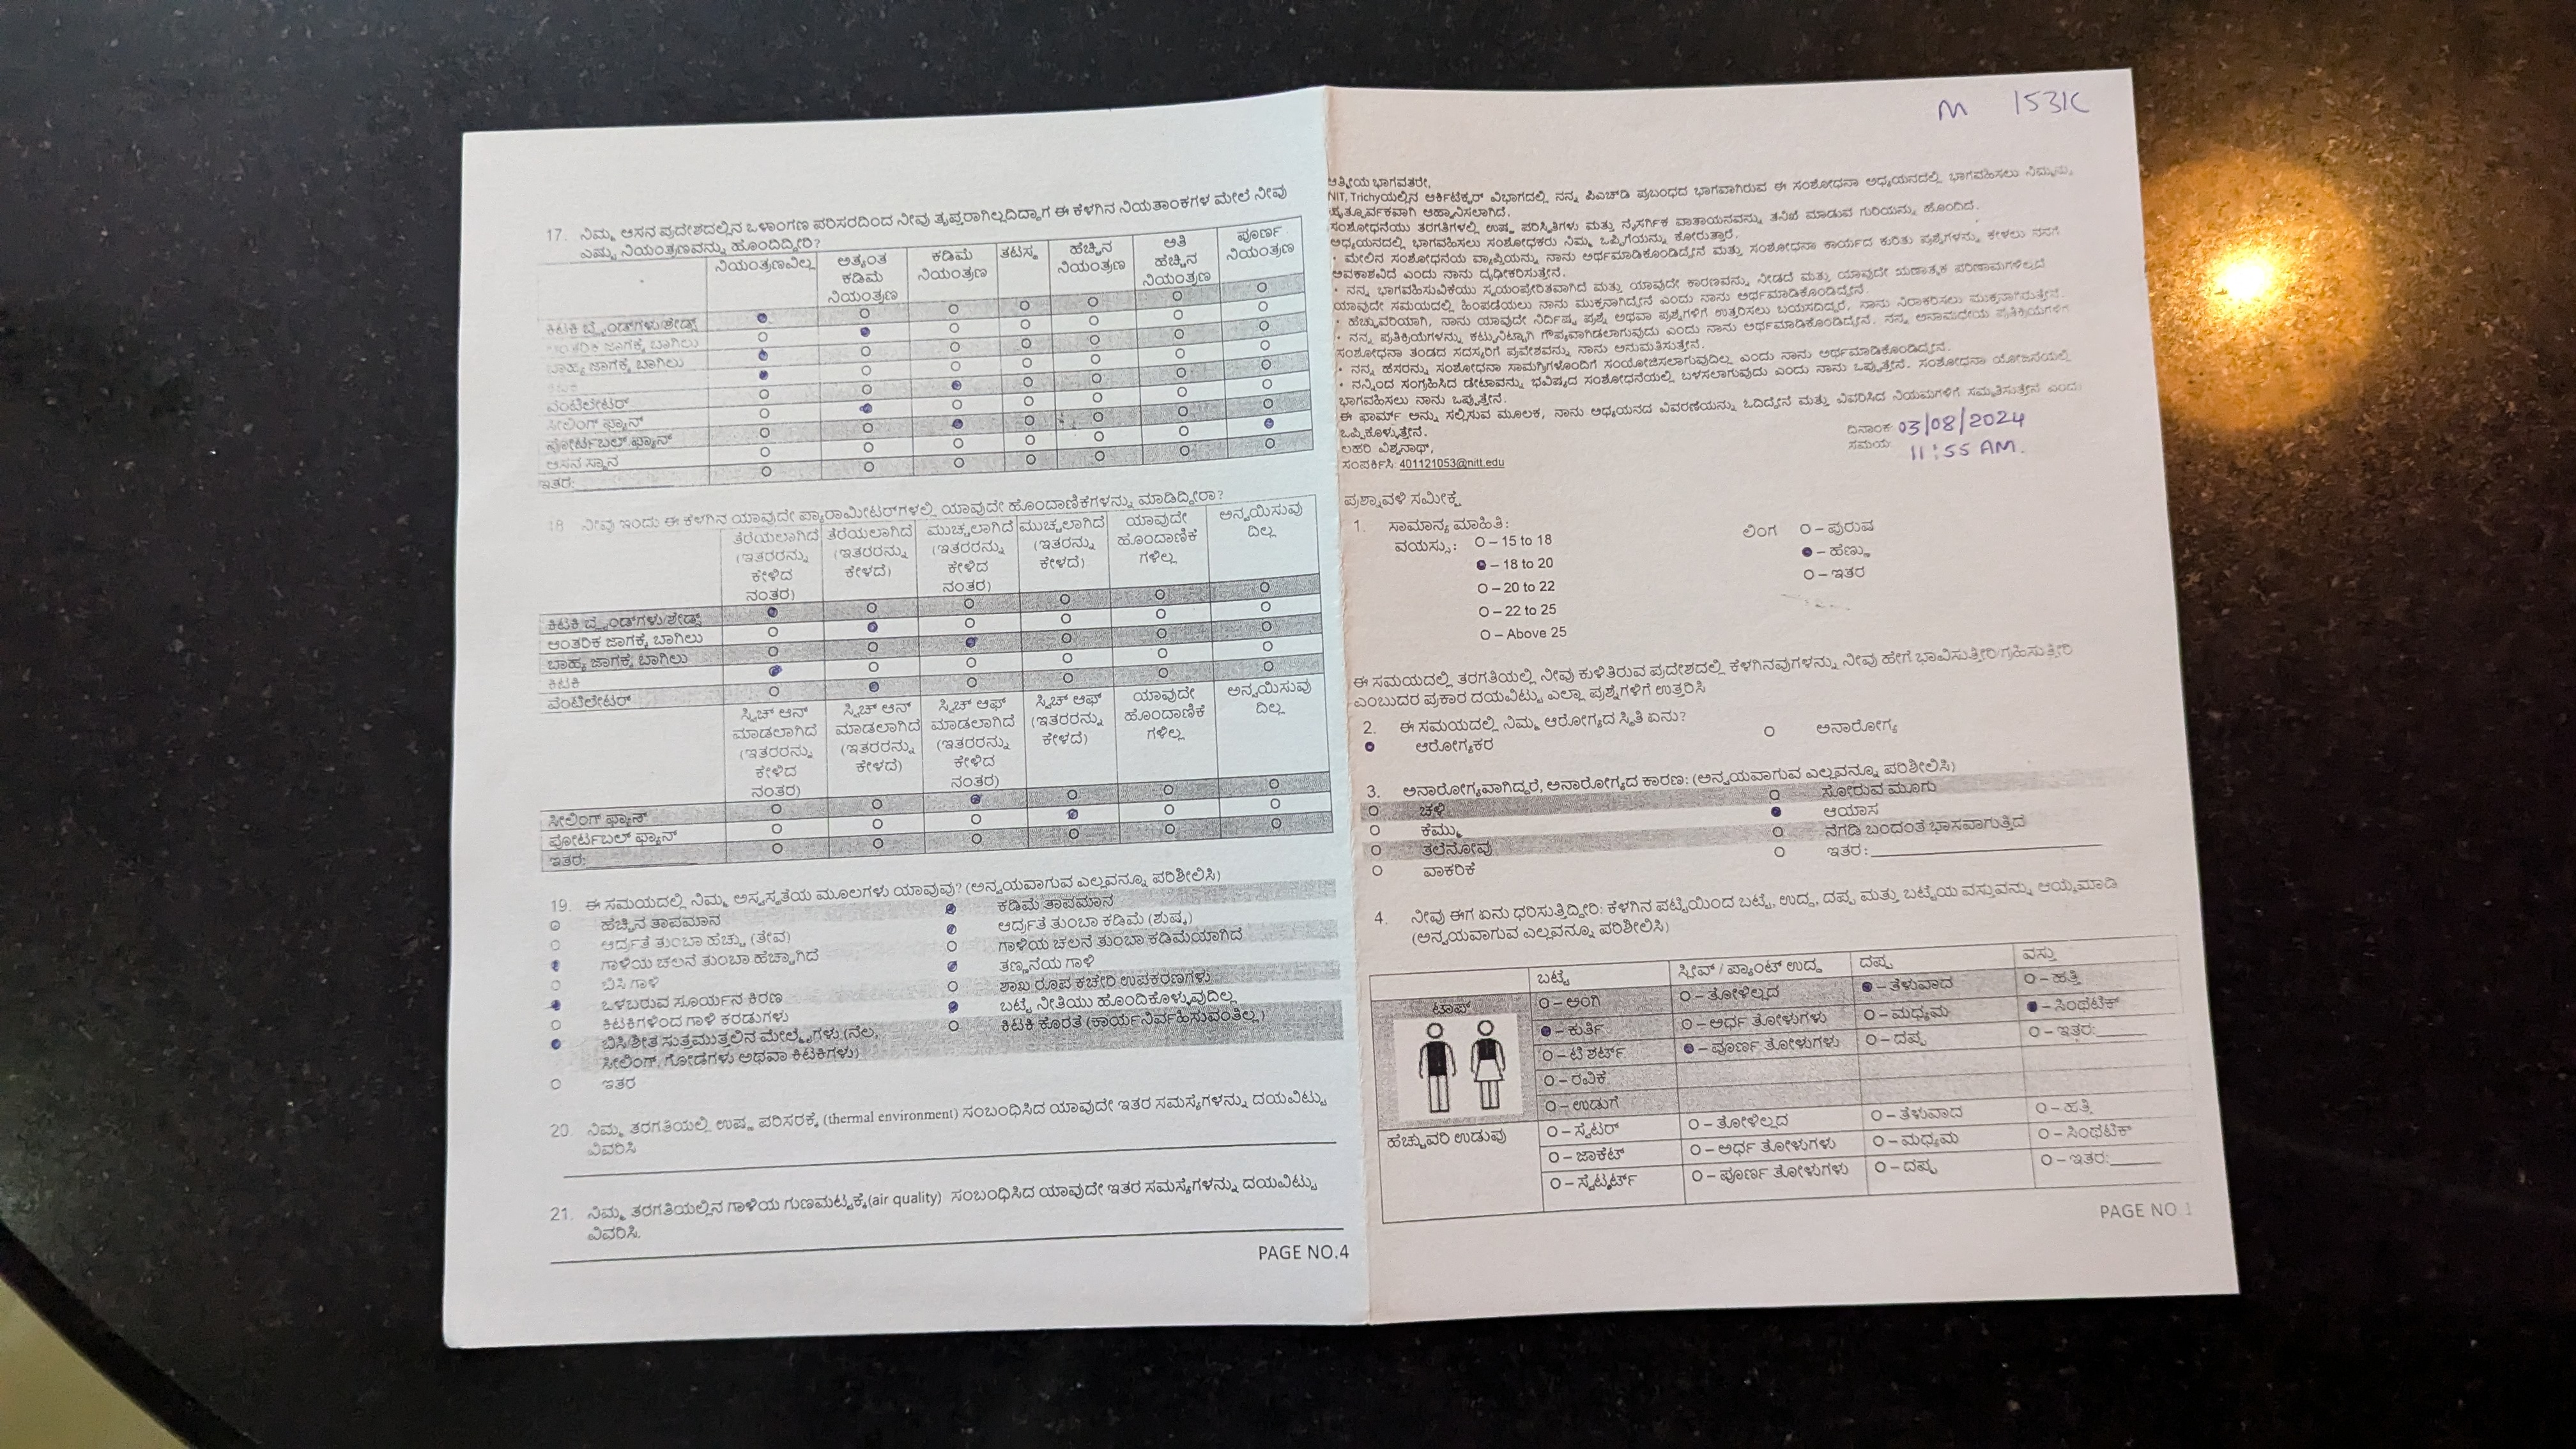 17. ನಿಮ್ಮ ಆಸನ ಪ್ರದೇಶದಲ್ಲಿನ ಒಳಾಂಗಣ ಪರಿಸರದಿಂದ ನೀವು ತೃಪ್ತರಾಗಿಲ್ಲದಿದ್ದಾಗ ಈ ಕೆಳಗಿನ ನಿಯತಾಂಕಗಳ ಮೇಲೆ ನೀವು
ಎಷ್ಟು ನಿಯಂತ್ರಣವನ್ನು ಹೊಂದಿದ್ದೀರಿ?
ನಿಯಂತ್ರಣವಿಲ್ಲ ಅತ್ಯಂತ ಕಡಿಮೆ ನಿಯಂತ್ರಣ ಕಡಿಮೆ ನಿಯಂತ್ರಣ ತಟಸ್ಥ ಹೆಚ್ಚಿನ ನಿಯಂತ್ರಣ ಅತಿ ಹೆಚ್ಚಿನ ನಿಯಂತ್ರಣ ಪೂರ್ಣ ನಿಯಂತ್ರಣ
ಕಿಟಕಿ ಬ್ಲೈಂಡ್‌ಗಳು/ಶೇಡ್ಸ್
ಆಂತರಿಕ ಜಾಗಕ್ಕೆ ಬಾಗಿಲು
ಬಾಹ್ಯ ಜಾಗಕ್ಕೆ ಬಾಗಿಲು
ಕಿಟಕಿ
ವೆಂಟಿಲೇಟರ್
ಸೀಲಿಂಗ್ ಫ್ಯಾನ್
ಪೋರ್ಟಬಲ್ ಫ್ಯಾನ್
ಆಸನ ಸ್ಥಾನ
ಇತರ:
18 ನೀವು ಇಂದು ಈ ಕೆಳಗಿನ ಯಾವುದೇ ಪ್ಯಾರಾಮೀಟರ್‌ಗಳಲ್ಲಿ ಯಾವುದೇ ಹೊಂದಾಣಿಕೆಗಳನ್ನು ಮಾಡಿದ್ದೀರಾ?
ತೆರೆಯಲಾಗಿದೆ (ಇತರರನ್ನು ಕೇಳಿದ ನಂತರ) ತೆರೆಯಲಾಗಿದೆ (ಇತರರನ್ನು ಕೇಳದೆ) ಮುಚ್ಚಲಾಗಿದೆ (ಇತರರನ್ನು ಕೇಳಿದ ನಂತರ) ಮುಚ್ಚಲಾಗಿದೆ (ಇತರರನ್ನು ಕೇಳದೆ) ಯಾವುದೇ ಹೊಂದಾಣಿಕೆ ಗಳಿಲ್ಲ ಅನ್ವಯಿಸುವು ದಿಲ್ಲ
ಕಿಟಕಿ ಬ್ಲೈಂಡ್‌ಗಳು/ಶೇಡ್ಸ್
ಆಂತರಿಕ ಜಾಗಕ್ಕೆ ಬಾಗಿಲು
ಬಾಹ್ಯ ಜಾಗಕ್ಕೆ ಬಾಗಿಲು
ಕಿಟಕಿ
ವೆಂಟಿಲೇಟರ್
ಸ್ವಿಚ್ ಆನ್ ಮಾಡಲಾಗಿದೆ (ಇತರರನ್ನು ಕೇಳಿದ ನಂತರ) ಸ್ವಿಚ್ ಆನ್ ಮಾಡಲಾಗಿದೆ (ಇತರರನ್ನು ಕೇಳದೆ) ಸ್ವಿಚ್ ಆಫ್ ಮಾಡಲಾಗಿದೆ (ಇತರರನ್ನು ಕೇಳಿದ ನಂತರ) ಸ್ವಿಚ್ ಆಫ್ (ಇತರರನ್ನು ಕೇಳದೆ) ಯಾವುದೇ ಹೊಂದಾಣಿಕೆ ಗಳಿಲ್ಲ ಅನ್ವಯಿಸುವು ದಿಲ್ಲ
ಸೀಲಿಂಗ್ ಫ್ಯಾನ್
ಪೋರ್ಟಬಲ್ ಫ್ಯಾನ್
ಇತರ:
19. ಈ ಸಮಯದಲ್ಲಿ ನಿಮ್ಮ ಅಸ್ವಸ್ಥತೆಯ ಮೂಲಗಳು ಯಾವುವು? (ಅನ್ವಯವಾಗುವ ಎಲ್ಲವನ್ನೂ ಪರಿಶೀಲಿಸಿ)
ಹೆಚ್ಚಿನ ತಾಪಮಾನ ಕಡಿಮೆ ತಾಪಮಾನ
ಆರ್ದ್ರತೆ ತುಂಬಾ ಹೆಚ್ಚು (ತೇವ) ಆರ್ದ್ರತೆ ತುಂಬಾ ಕಡಿಮೆ (ಶುಷ್ಕ)
ಗಾಳಿಯ ಚಲನೆ ತುಂಬಾ ಹೆಚ್ಚಾಗಿದೆ ಗಾಳಿಯ ಚಲನೆ ತುಂಬಾ ಕಡಿಮೆಯಾಗಿದೆ
ಬಿಸಿ ಗಾಳಿ ತಣ್ಣನೆಯ ಗಾಳಿ
ಒಳಬರುವ ಸೂರ್ಯನ ಕಿರಣ ಶಾಖ ರೂಪ ಕಚೇರಿ ಉಪಕರಣಗಳು
ಕಿಟಕಿಗಳಿಂದ ಗಾಳಿ ಕರಡುಗಳು ಬಟ್ಟೆ ನೀತಿಯು ಹೊಂದಿಕೊಳ್ಳುವುದಿಲ್ಲ
ಬಿಸಿ/ಶೀತ ಸುತ್ತಮುತ್ತಲಿನ ಮೇಲ್ಮೈಗಳು (ನೆಲ, ಕಿಟಕಿ ಕೊರತೆ (ಕಾರ್ಯನಿರ್ವಹಿಸುವಂತಿಲ್ಲ)
ಸೀಲಿಂಗ್, ಗೋಡೆಗಳು ಅಥವಾ ಕಿಟಕಿಗಳು)
ಇತರ
20. ನಿಮ್ಮ ತರಗತಿಯಲ್ಲಿ ಉಷ್ಣ ಪರಿಸರಕ್ಕೆ (thermal environment) ಸಂಬಂಧಿಸಿದ ಯಾವುದೇ ಇತರ ಸಮಸ್ಯೆಗಳನ್ನು ದಯವಿಟ್ಟು
ವಿವರಿಸಿ
21. ನಿಮ್ಮ ತರಗತಿಯಲ್ಲಿನ ಗಾಳಿಯ ಗುಣಮಟ್ಟಕ್ಕೆ(air quality) ಸಂಬಂಧಿಸಿದ ಯಾವುದೇ ಇತರ ಸಮಸ್ಯೆಗಳನ್ನು ದಯವಿಟ್ಟು
ವಿವರಿಸಿ.
PAGE NO.4
M 1531C
ಆತ್ಮೀಯ ಭಾಗವತರೇ,
NIT, Trichyಯಲ್ಲಿನ ಆರ್ಕಿಟೆಕ್ಚರ್ ವಿಭಾಗದಲ್ಲಿ ನನ್ನ ಪಿಎಚ್‌ಡಿ ಪ್ರಬಂಧದ ಭಾಗವಾಗಿರುವ ಈ ಸಂಶೋಧನಾ ಅಧ್ಯಯನದಲ್ಲಿ ಭಾಗವಹಿಸಲು ನಿಮ್ಮನ್ನು
ಹೃತ್ಪೂರ್ವಕವಾಗಿ ಆಹ್ವಾನಿಸಲಾಗಿದೆ.
ಸಂಶೋಧನೆಯು ತರಗತಿಗಳಲ್ಲಿ ಉಷ್ಣ ಪರಿಸ್ಥಿತಿಗಳು ಮತ್ತು ನೈಸರ್ಗಿಕ ವಾತಾಯನವನ್ನು ತನಿಖೆ ಮಾಡುವ ಗುರಿಯನ್ನು ಹೊಂದಿದೆ.
ಅಧ್ಯಯನದಲ್ಲಿ ಭಾಗವಹಿಸಲು ಸಂಶೋಧಕರು ನಿಮ್ಮ ಒಪ್ಪಿಗೆಯನ್ನು ಕೋರುತ್ತಾರೆ.
• ಮೇಲಿನ ಸಂಶೋಧನೆಯ ವ್ಯಾಪ್ತಿಯನ್ನು ನಾನು ಅರ್ಥಮಾಡಿಕೊಂಡಿದ್ದೇನೆ ಮತ್ತು ಸಂಶೋಧನಾ ಕಾರ್ಯದ ಕುರಿತು ಪ್ರಶ್ನೆಗಳನ್ನು ಕೇಳಲು ನನಗೆ
ಅವಕಾಶವಿದೆ ಎಂದು ನಾನು ದೃಢೀಕರಿಸುತ್ತೇನೆ.
• ನನ್ನ ಭಾಗವಹಿಸುವಿಕೆಯು ಸ್ವಯಂಪ್ರೇರಿತವಾಗಿದೆ ಮತ್ತು ಯಾವುದೇ ಕಾರಣವನ್ನು ನೀಡದೆ ಮತ್ತು ಯಾವುದೇ ಋಣಾತ್ಮಕ ಪರಿಣಾಮಗಳಿಲ್ಲದೆ
ಯಾವುದೇ ಸಮಯದಲ್ಲಿ ಹಿಂಪಡೆಯಲು ನಾನು ಮುಕ್ತನಾಗಿದ್ದೇನೆ ಎಂದು ನಾನು ಅರ್ಥಮಾಡಿಕೊಂಡಿದ್ದೇನೆ.
• ಹೆಚ್ಚುವರಿಯಾಗಿ, ನಾನು ಯಾವುದೇ ನಿರ್ದಿಷ್ಟ ಪ್ರಶ್ನೆ ಅಥವಾ ಪ್ರಶ್ನೆಗಳಿಗೆ ಉತ್ತರಿಸಲು ಬಯಸದಿದ್ದರೆ, ನಾನು ನಿರಾಕರಿಸಲು ಮುಕ್ತನಾಗಿರುತ್ತೇನೆ.
• ನನ್ನ ಪ್ರತಿಕ್ರಿಯೆಗಳನ್ನು ಕಟ್ಟುನಿಟ್ಟಾಗಿ ಗೌಪ್ಯವಾಗಿಡಲಾಗುವುದು ಎಂದು ನಾನು ಅರ್ಥಮಾಡಿಕೊಂಡಿದ್ದೇನೆ. ನನ್ನ ಅನಾಮಧೇಯ ಪ್ರತಿಕ್ರಿಯೆಗಳಿಗೆ
ಸಂಶೋಧನಾ ತಂಡದ ಸದಸ್ಯರಿಗೆ ಪ್ರವೇಶವನ್ನು ನಾನು ಅನುಮತಿಸುತ್ತೇನೆ.
• ನನ್ನ ಹೆಸರನ್ನು ಸಂಶೋಧನಾ ಸಾಮಗ್ರಿಗಳೊಂದಿಗೆ ಸಂಯೋಜಿಸಲಾಗುವುದಿಲ್ಲ ಎಂದು ನಾನು ಅರ್ಥಮಾಡಿಕೊಂಡಿದ್ದೇನೆ.
• ನನ್ನಿಂದ ಸಂಗ್ರಹಿಸಿದ ಡೇಟಾವನ್ನು ಭವಿಷ್ಯದ ಸಂಶೋಧನೆಯಲ್ಲಿ ಬಳಸಲಾಗುವುದು ಎಂದು ನಾನು ಒಪ್ಪುತ್ತೇನೆ. ಸಂಶೋಧನಾ ಯೋಜನೆಯಲ್ಲಿ
ಭಾಗವಹಿಸಲು ನಾನು ಒಪ್ಪುತ್ತೇನೆ.
ಈ ಫಾರ್ಮ್ ಅನ್ನು ಸಲ್ಲಿಸುವ ಮೂಲಕ, ನಾನು ಅಧ್ಯಯನದ ವಿವರಣೆಯನ್ನು ಓದಿದ್ದೇನೆ ಮತ್ತು ವಿವರಿಸಿದ ನಿಯಮಗಳಿಗೆ ಸಮ್ಮತಿಸುತ್ತೇನೆ ಎಂದು
ಒಪ್ಪಿಕೊಳ್ಳುತ್ತೇನೆ.
ಲಹರಿ ವಿಶ್ವನಾಥ್,
ಸಂಪರ್ಕಿಸಿ: 401121053@nitt.edu
ದಿನಾಂಕ: 03/08/2024
ಸಮಯ: 11:55 AM.
ಪ್ರಶ್ನಾವಳಿ ಸಮೀಕ್ಷೆ
1. ಸಾಮಾನ್ಯ ಮಾಹಿತಿ:
ವಯಸ್ಸು: O – 15 to 18 ಲಿಂಗ O – ಪುರುಷ
– 18 to 20 – ಹೆಣ್ಣು
O – 20 to 22 O – ಇತರ
O – 22 to 25
O – Above 25
ಈ ಸಮಯದಲ್ಲಿ ತರಗತಿಯಲ್ಲಿ ನೀವು ಕುಳಿತಿರುವ ಪ್ರದೇಶದಲ್ಲಿ ಕೆಳಗಿನವುಗಳನ್ನು ನೀವು ಹೇಗೆ ಭಾವಿಸುತ್ತೀರಿ/ಗ್ರಹಿಸುತ್ತೀರಿ
ಎಂಬುದರ ಪ್ರಕಾರ ದಯವಿಟ್ಟು ಎಲ್ಲಾ ಪ್ರಶ್ನೆಗಳಿಗೆ ಉತ್ತರಿಸಿ
2. ಈ ಸಮಯದಲ್ಲಿ ನಿಮ್ಮ ಆರೋಗ್ಯದ ಸ್ಥಿತಿ ಏನು?
ಆರೋಗ್ಯಕರ O ಅನಾರೋಗ್ಯ
3. ಅನಾರೋಗ್ಯವಾಗಿದ್ದರೆ, ಅನಾರೋಗ್ಯದ ಕಾರಣ: (ಅನ್ವಯವಾಗುವ ಎಲ್ಲವನ್ನೂ ಪರಿಶೀಲಿಸಿ)
O ಚಳಿ O ಸೋರುವ ಮೂಗು
O ಕೆಮ್ಮು ಆಯಾಸ
O ತಲೆನೋವು O ನೆಗಡಿ ಬಂದಂತೆ ಭಾಸವಾಗುತ್ತಿದೆ
O ವಾಕರಿಕೆ O ಇತರ:
4. ನೀವು ಈಗ ಏನು ಧರಿಸುತ್ತಿದ್ದೀರಿ: ಕೆಳಗಿನ ಪಟ್ಟಿಯಿಂದ ಬಟ್ಟೆ, ಉದ್ದ, ದಪ್ಪ ಮತ್ತು ಬಟ್ಟೆಯ ವಸ್ತುವನ್ನು ಆಯ್ಕೆಮಾಡಿ
(ಅನ್ವಯವಾಗುವ ಎಲ್ಲವನ್ನೂ ಪರಿಶೀಲಿಸಿ)
ಬಟ್ಟೆ ಸ್ಲೀವ್ / ಪ್ಯಾಂಟ್ ಉದ್ದ ದಪ್ಪ ವಸ್ತು
ಟಾಪ್ O – ಅಂಗಿ O – ತೋಳಿಲ್ಲದ – ತೆಳುವಾದ O – ಹತ್ತಿ
– ಕುರ್ತಿ O – ಅರ್ಧ ತೋಳುಗಳು O – ಮಧ್ಯಮ – ಸಿಂಥೆಟಿಕ್
O – ಟಿ ಶರ್ಟ್ – ಪೂರ್ಣ ತೋಳುಗಳು O – ದಪ್ಪ O – ಇತರ:
O – ರವಿಕೆ
O – ಉಡುಗೆ
ಹೆಚ್ಚುವರಿ ಉಡುಪು O – ಸ್ವೆಟರ್ O – ತೋಳಿಲ್ಲದ O – ತೆಳುವಾದ O – ಹತ್ತಿ
O – ಜಾಕೆಟ್ O – ಅರ್ಧ ತೋಳುಗಳು O – ಮಧ್ಯಮ O – ಸಿಂಥೆಟಿಕ್
O – ಸ್ವೆಟ್ಶರ್ಟ್ O – ಪೂರ್ಣ ತೋಳುಗಳು O – ದಪ್ಪ O – ಇತರ:
PAGE NO 1